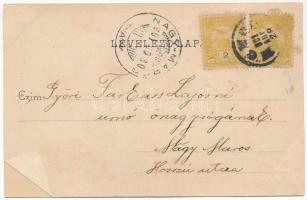 LEVELEZŐLAP
NAGY-MAROS
Czim: Győri Farkass Lajosné
urnő őnagyságának
Nagy Maros
Hosszú utcza